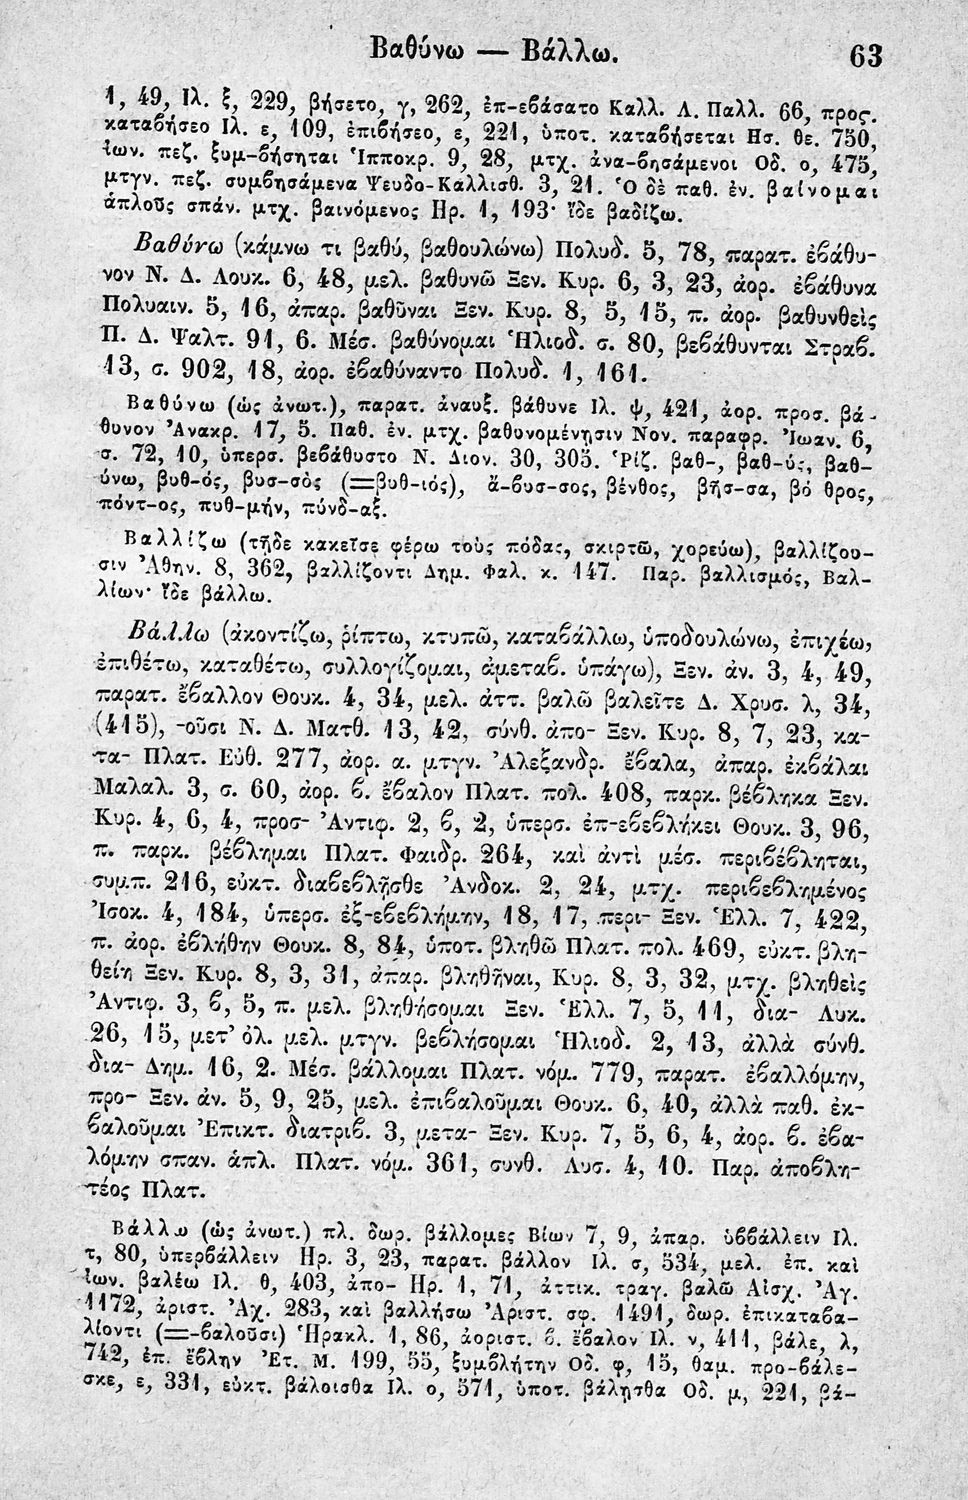 Βαθύνω — Βάλλω. 63
1, 49, Ιλ. ξ, 229, βήσετο, γ, 262, ἐπ-εϐάσατο Καλλ. Λ. Παλλ. 66, προς.
καταϐήσεο Ιλ. ε, 109, ἐπιϐήσεο, ε, 221, ὑποτ. καταϐήσεται Ησ. θε. 750,
ἰων. πεζ. ξυμ-ϐήσηται Ἱπποκρ. 9, 28, μτχ. ἀνα-ϐησάμενοι Οδ. ο, 475,
μτγν. πεζ. συμϐησάμενα Ψευδο-Καλλισθ. 3, 21. Ὁ δὲ παθ. ἐν. βαίνομαι
ἁπλοῦς σπάν. μτχ. βαινόμενος Ηρ. 1, 193· ἴδε βαδίζω.
Βαθύνω (κάμνω τι βαθύ, βαθουλώνω) Πολυδ. 5, 78, παρατ. ἐϐάθυ-
νον Ν. Δ. Λουκ. 6, 48, μελ. βαθυνῶ Ξεν. Κυρ. 6, 3, 23, ἀορ. ἐϐάθυνα
Πολυαιν. 5, 16, ἀπαρ. βαθῦναι Ξεν. Κυρ. 8, 5, 15, π. ἀορ. βαθυνθεὶς
Π. Δ. Ψαλτ. 91, 6. Μέσ. βαθύνομαι Ἡλιοδ. σ. 80, βεϐάθυνται Στραϐ.
13, σ. 902, 18, ἀορ. ἐϐαθύναντο Πολυδ. 1, 161.
Βαθύνω (ὡς ἀνωτ.), παρατ. ἀναυξ. βάθυνε Ιλ. ψ, 421, ἀορ. προσ. βά-
θυνον Ἀνακρ. 17, 5. Παθ. ἐν. μτχ. βαθυνομένησιν Νον. παραφρ. Ἰωαν. 6,
σ. 72, 10, ὑπερσ. βεϐάθυστο Ν. Διον. 30, 305. Ῥίζ. βαθ-, βαθ-ύς, βαθ-
ύνω, βυθ-ός, βυσ-σὸς (=βυθ-ιός), ἄ-ϐυσ-σος, βένθος, βῆσ-σα, βό θρος,
πόντ-ος, πυθ-μήν, πύνδ-αξ.
Βαλλίζω (τῇδε κακεῖσε φέρω τοὺς πόδας, σκιρτῶ, χορεύω), βαλλίζου-
σιν Ἀθην. 8, 362, βαλλίζοντι Δημ. Φαλ. κ. 147. Παρ. βαλλισμός, Βαλ-
λίων· ἴδε βάλλω.
Βάλλω (ἀκοντίζω, ῥίπτω, κτυπῶ, καταϐάλλω, ὑποδουλώνω, ἐπιχέω,
ἐπιθέτω, καταθέτω, συλλογίζομαι, ἀμεταϐ. ὑπάγω), Ξεν. ἀν. 3, 4, 49,
παρατ. ἔϐαλλον Θουκ. 4, 34, μελ. ἀττ. βαλῶ βαλεῖτε Δ. Χρυσ. λ, 34,
(415), -οῦσι Ν. Δ. Ματθ. 13, 42, σύνθ. ἀπο- Ξεν. Κυρ. 8, 7, 23, κα-
τα- Πλατ. Εὐθ. 277, ἀορ. α. μτγν. Ἀλεξανδρ. ἔϐαλα, ἀπαρ. ἐκϐάλαι
Μαλαλ. 3, σ. 60, ἀορ. ϐ. ἔϐαλον Πλατ. πολ. 408, παρκ. βέϐληκα Ξεν.
Κυρ. 4, 6, 4, προσ- Ἀντιφ. 2, ϐ, 2, ὑπερσ. ἐπ-εϐεϐλήκει Θουκ. 3, 96,
π. παρκ. βέϐλημαι Πλατ. Φαιδρ. 264, καὶ ἀντὶ μέσ. περιϐέϐληται,
συμπ. 216, εὐκτ. διαϐεϐλῇσθε Ἀνδοκ. 2, 24, μτχ. περιϐεϐλημένος
Ἰσοκ. 4, 184, ὑπερσ. ἐξ-εϐεϐλήμην, 18, 17, περι- Ξεν. Ἑλλ. 7, 422,
π. ἀορ. ἐϐλήθην Θουκ. 8, 84, ὑποτ. βληθῶ Πλατ. πολ. 469, εὐκτ. βλη-
θείη Ξεν. Κυρ. 8, 3, 31, ἀπαρ. βληθῆναι, Κυρ. 8, 3, 32, μτχ. βληθεὶς
Ἀντιφ. 3, ϐ, 5, π. μελ. βληθήσομαι Ξεν. Ἑλλ. 7, 5, 11, δια- Λυκ.
26, 15, μετ’ ὀλ. μελ. μτγν. βεϐλήσομαι Ἡλιοδ. 2, 13, ἀλλὰ σύνθ.
δια- Δημ. 16, 2. Μέσ. βάλλομαι Πλατ. νόμ. 779, παρατ. ἐϐαλλόμην,
προ- Ξεν. ἀν. 5, 9, 25, μελ. ἐπιϐαλοῦμαι Θουκ. 6, 40, ἀλλὰ παθ. ἐκ-
ϐαλοῦμαι Ἐπικτ. διατριϐ. 3, μετα- Ξεν. Κυρ. 7, 5, 6, 4, ἀορ. ϐ. ἐϐα-
λόμην σπαν. ἁπλ. Πλατ. νόμ. 361, συνθ. Λυσ. 4, 10. Παρ. ἀποϐλη-
τέος Πλατ.
Βάλλω (ὡς ἀνωτ.) πλ. δωρ. βάλλομες Βίων 7, 9, ἀπαρ. ὑϐϐάλλειν Ιλ.
τ, 80, ὑπερϐάλλειν Ηρ. 3, 23, παρατ. βάλλον Ιλ. σ, 534, μελ. ἐπ. καὶ
ἰων. βαλέω Ιλ. θ, 403, ἀπο- Ηρ. 1, 71, ἀττικ. τραγ. βαλῶ Αἰσχ. Ἀγ.
1172, ἀριστ. Ἀχ. 283, καὶ βαλλήσω Ἀριστ. σφ. 1491, δωρ. ἐπικαταϐα-
λίοντι (=-ϐαλοῦσι) Ἡρακλ. 1, 86, ἀοριστ. ϐ. ἔϐαλον Ιλ. ν, 411, βάλε, λ,
742, ἐπ. ἔϐλην Ἐτ. Μ. 199, 55, ξυμϐλήτην Οδ. φ, 15, θαμ. προ-ϐάλε-
σκε, ε, 331, εὐκτ. βάλοισθα Ιλ. ο, 571, ὑποτ. βάλῃσθα Οδ. μ, 221, βά-